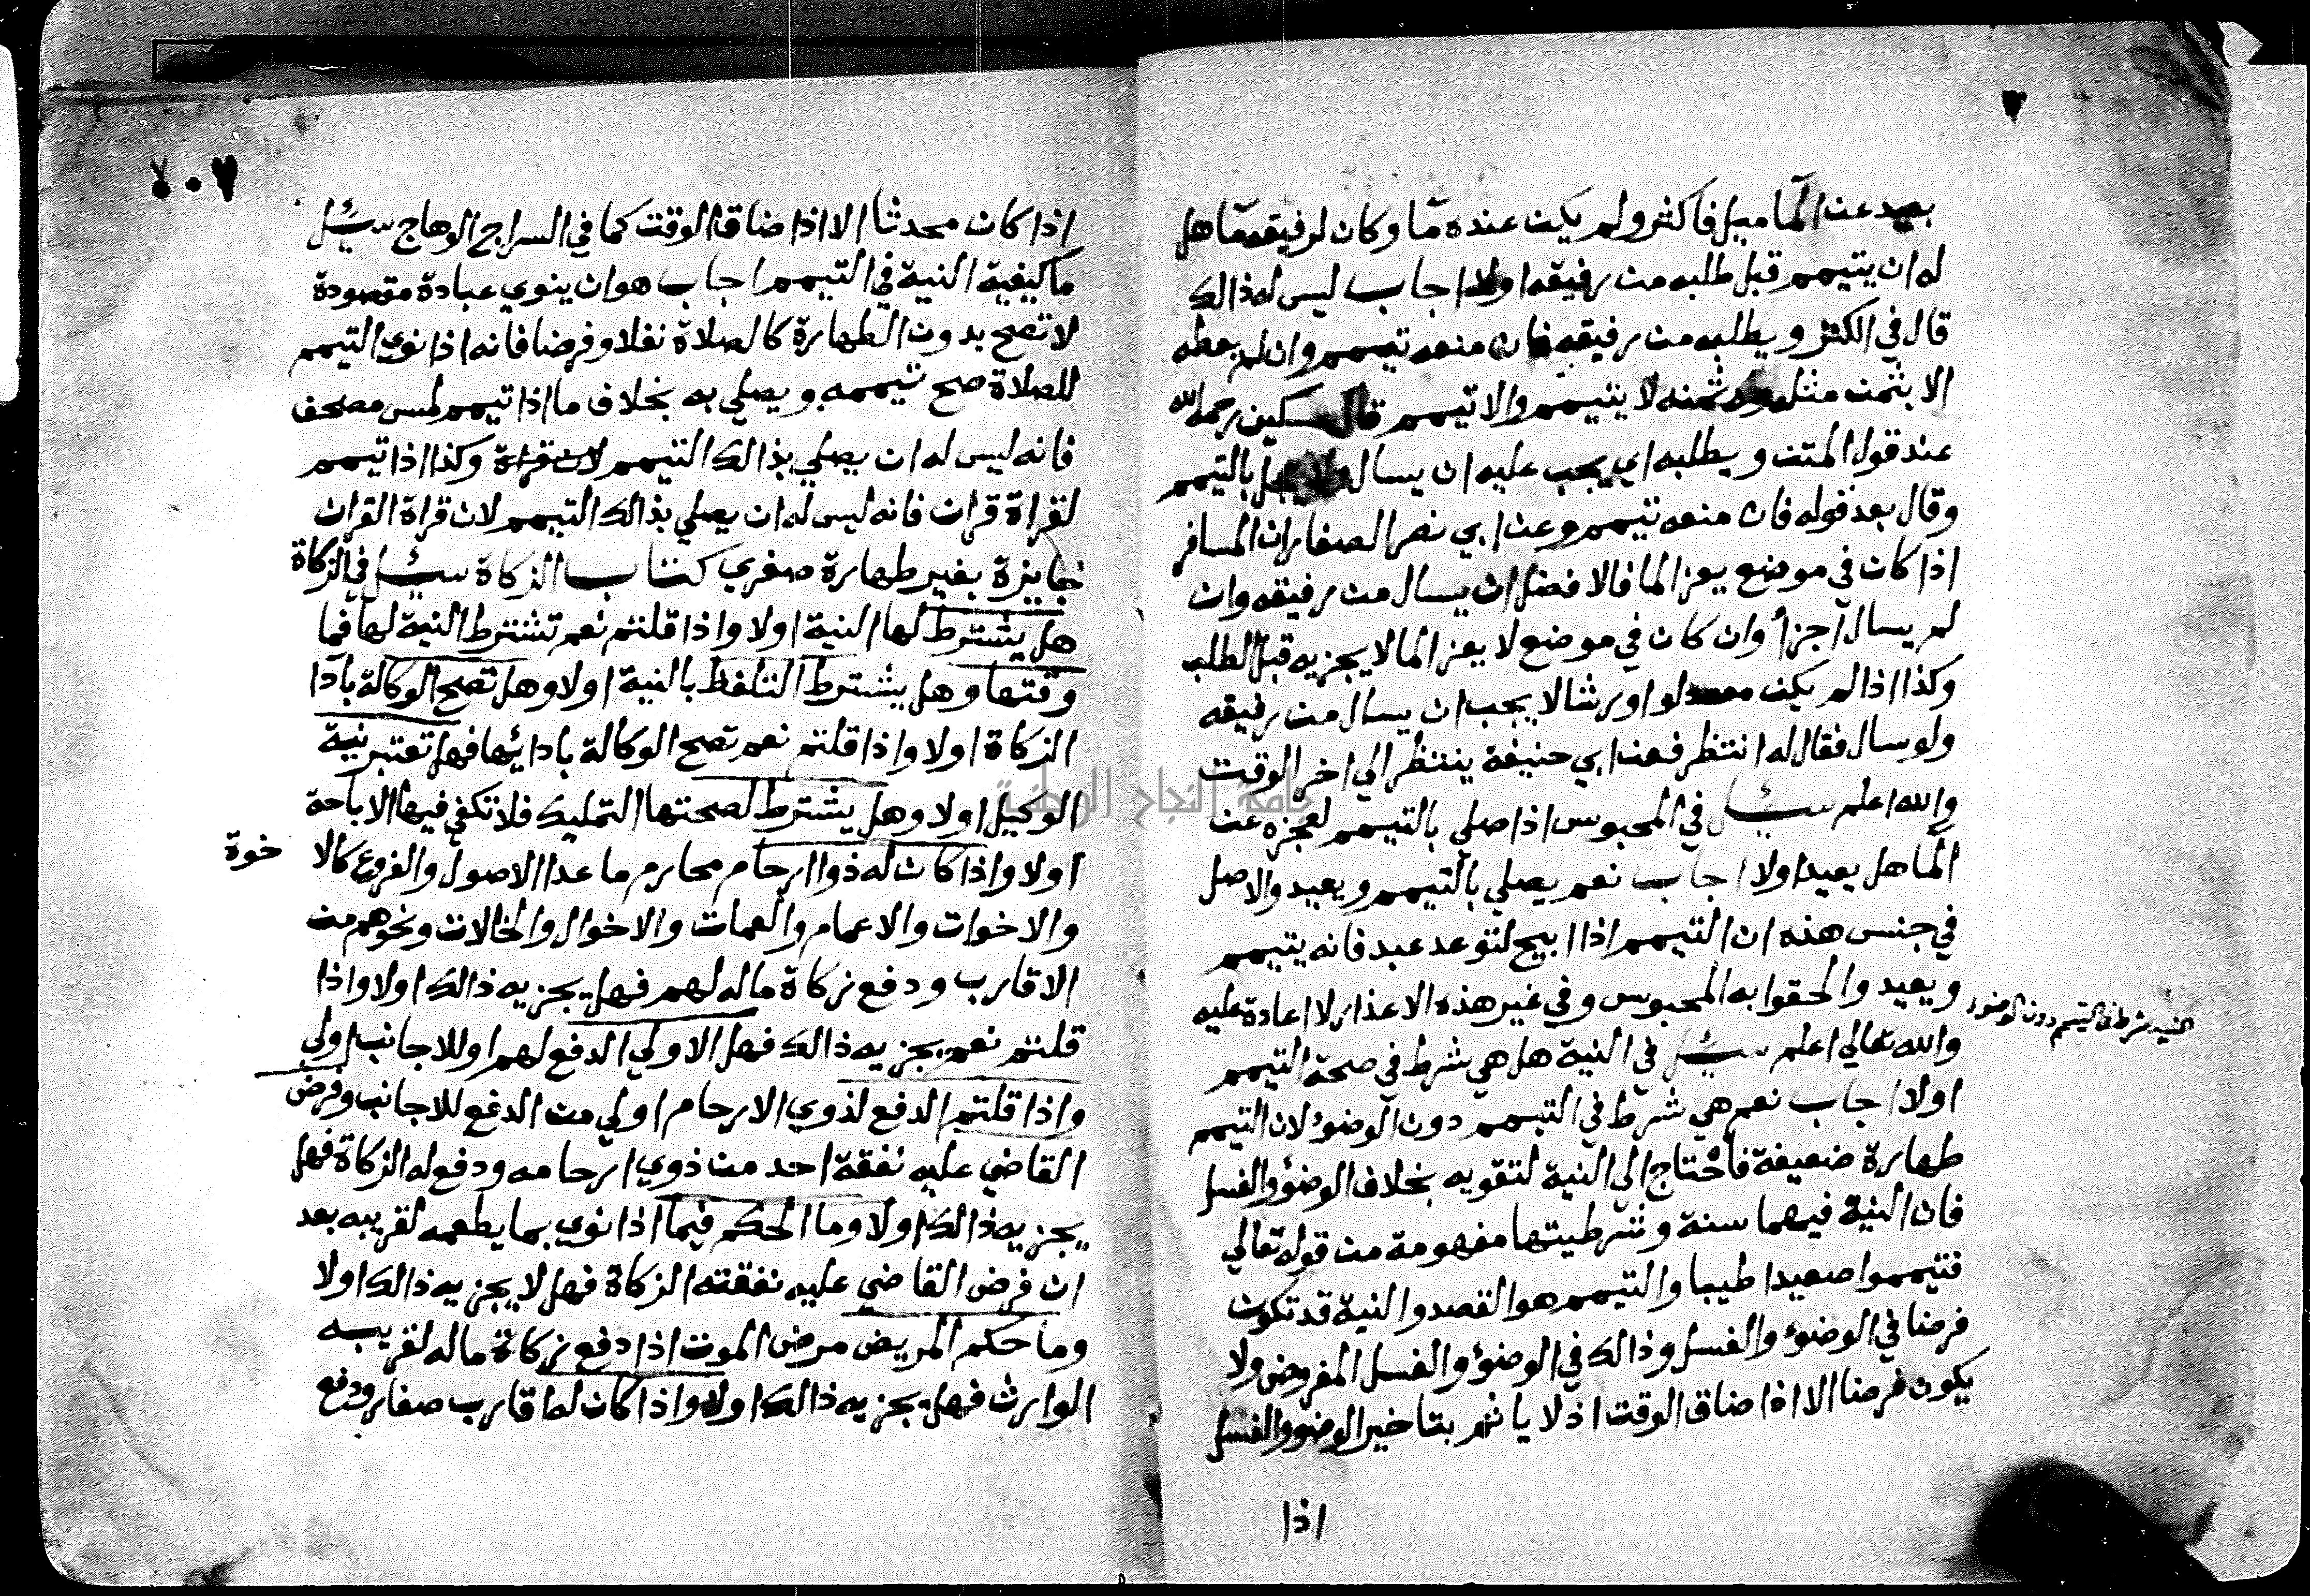 ٧
بعيد عن المآ ميل فاكثر ولم يكن عنده مآ وكان لرفيقه مآ هل
له ان يتيمم قبل طلبه من رفيقه اولا اجاب ليس له ذالك
قال في الكنز ويطلبه من رفيقه فان منعه تيمم وان لم يعطه
الا بثمن مثله وله ثمنه لا يتيمم والا تيمم قال مسكين رحمه الله
عند قول المتن ويطلبه اي يجب عليه ان يسال بالتيمم
وقال بعد قوله فان منعه تيمم وعن ابي نصر الصفار ان المسافر
اذا كان في موضع يعز الما فالافضل ان يسال من رفيقه وان
لم يسال اجزأ وان كان في موضع لا يعز الما لا يجزيه قبل الطلب
وكذا اذا لم يكن معه دلو او رشا لا يجب ان يسال من رفيقه
ولو سال فقال له انتظر فعند ابي حنيفة ينتظر الي اخر الوقت
والله اعلم سئل في المحبوس اذا صلي بالتيمم لعجزه عن
المآ هل يعيد اولا اجاب نعم يصلي بالتيمم ويعيد والاصل
في جنس هذه ان التيمم اذا ابيح لتوعد عبد فانه يتيمم
ويعيد والحقوا به المحبوس وفي غير هذه الاعذار لا اعادة عليه
النية شرط في التيمم دون الوضوء
والله تعالي اعلم سئل في النية هل هي شرط في صحة التيمم
اولا اجاب نعم هي شرط في التيمم دون الوضؤ لان التيمم
طهارة ضعيفة فاحتاج الي النية لتقويه بخلاف الوضؤ والغسل
فان النية فيهما سنة وشرطيتها مفهومة من قوله تعالي
فتيمموا صعيدا طيبا والتيمم هو القصد والنية قد تكون
فرضا في الوضوء والغسل وذالك في الوضؤ والغسل المفروض ولا
يكون فرضا الا اذا ضاق الوقت اذ لا ياثم بتاخير الوضوء والغسل
اذا
اذا كان محدثا الا اذا ضاق الوقت كما في السراج الوهاج سئل
ما كيفية النية في التيمم اجاب هو ان ينوي عبادة مقصودة
لا تصح بدون الطهارة كالصلاة نفلا وفرضا فانه اذا نوي التيمم
للصلاة صح تيممه ويصلي به بخلاف ما اذا تيمم لمس مصحف
فانه ليس له ان يصلي بذالك التيمم لان قراة وكذا اذا تيمم
لقراة قران فانه ليس له ان يصلي بذالك التيمم لان قراة القران
جايزة بغير طهارة صغري كتاب الزكاة سئل في الزكاة
هل يشترط لها النية اولا واذا قلتم نعم تشترط النية لها فما
وقتها وهل يشترط التلفظ بالنية اولا وهل تصح الوكالة بادا
الزكاة اولا واذا قلتم نعم تصح الوكالة بادائها فهل تعتبر نية
الوكيل اولا وهل يشترط لصحتها التمليك فلا تكفي فيها الاباحة
اولا واذا كان له ذوا ارحام محارم ما عدا الاصول والفروع كالا خوة
والاخوات والاعمام والعمات والاخوال والخالات ونحوهم من
الاقارب ودفع زكاة ماله لهم فهل يجزيه ذالك اولا واذا
قلتم نعم يجزيه ذالك فهل الاولي الدفع لهم او للاجانب اولي
واذا قلتم الدفع لذوي الارحام اولي من الدفع للاجانب وفرض
القاضي عليه نفقة احد من ذوي ارحامه ودفع له الزكاة فهل
يجزيه ذالك اولا وما الحكم فيما اذا نوي بما يطعمه لقريبه بعد
ان فرض القاضي عليه نفقته الزكاة فهل لا يجزيه ذالك اولا
وما حكم المريض مرض الموت اذا دفع زكاة ماله لقريبه
الوارث فهل يجزيه ذالك اولا واذا كان له اقارب صغار ودفع
جامعة النجاح الوطنية